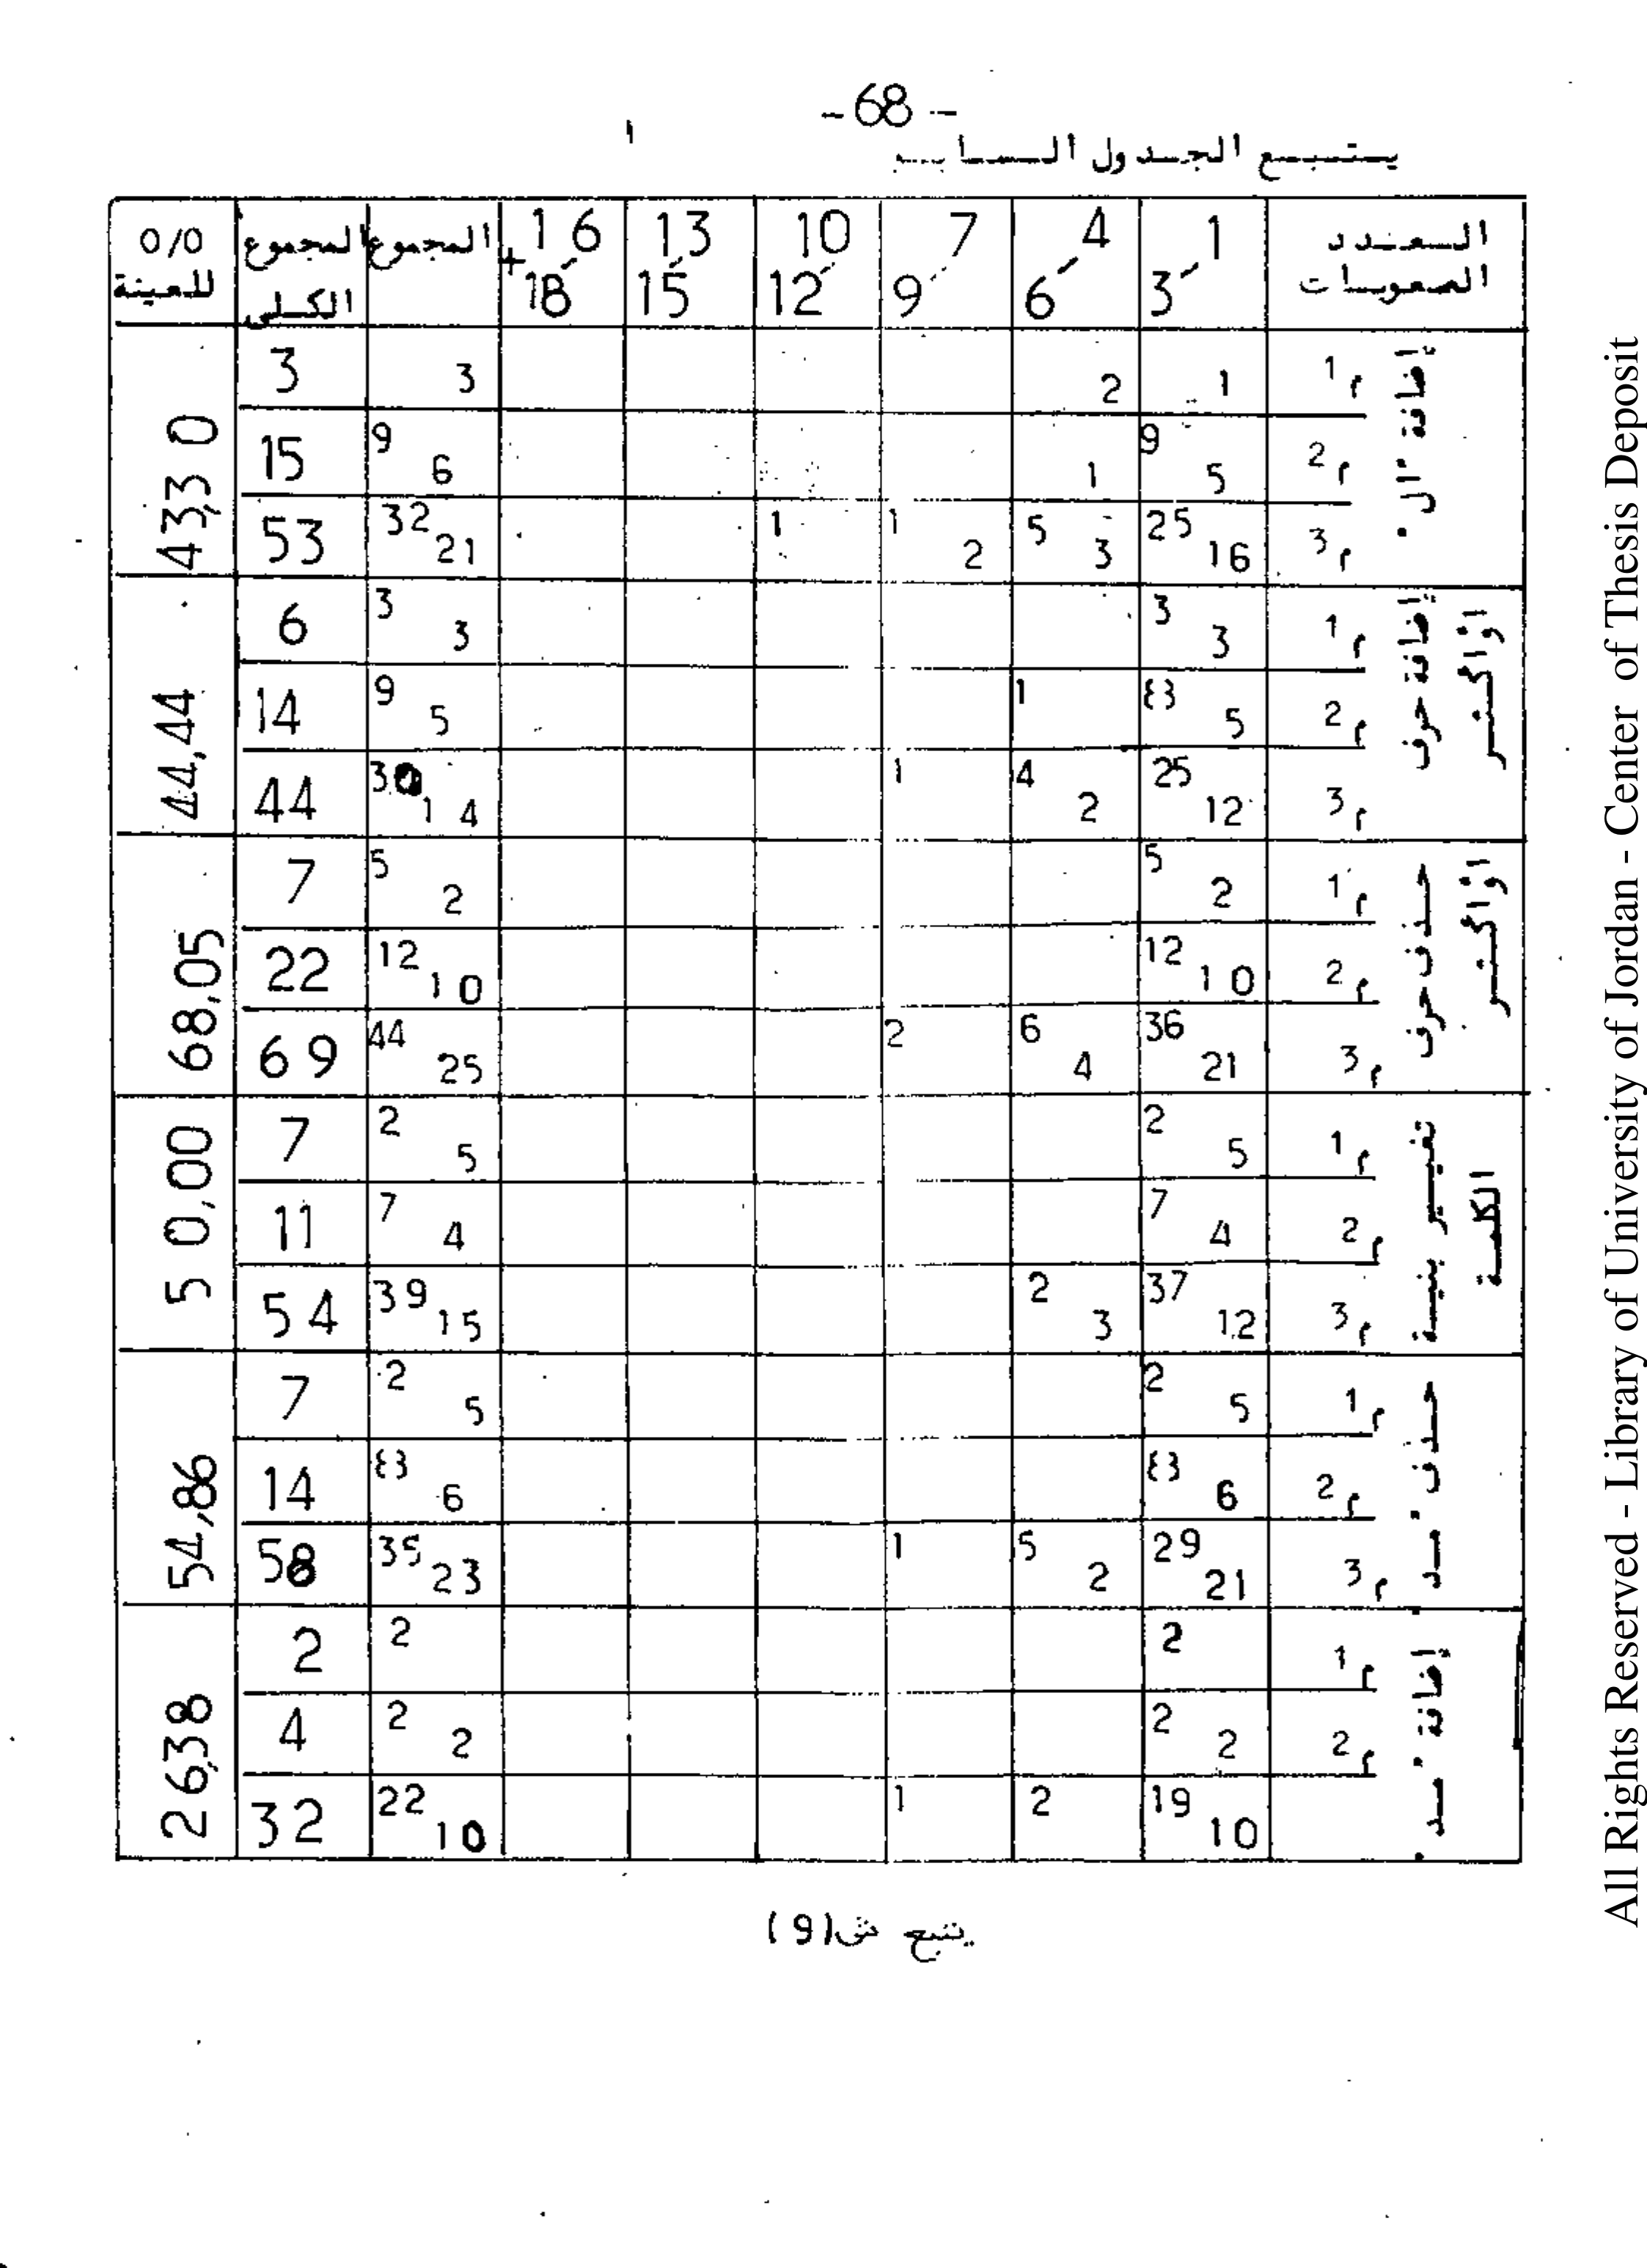 - 68 -
يتبع الجدول السا
العدد 1-3 4-6 7-9 10-12 13-15 16-18+ المجموع المجموع الكلي 0/0 للعينة
الصعوبات
إضافة "ال" 43,30
م1 1 2 3 3
م2 9 5 1 9 6 15
م3 25 16 5 3 1 2 1 32 21 53
إضافة حرف او اكثر 44,44
م1 3 3 3 3 6
م2 8 5 1 9 5 14
م3 25 12 4 2 1 30 14 44
حذف حرف او اكثر 68,05
م1 5 2 5 2 7
م2 12 10 12 10 22
م3 36 21 6 4 2 44 25 69
تغيير بنية الكلمة 50,00
م1 2 5 2 5 7
م2 7 4 7 4 11
م3 37 12 2 3 39 15 54
حذف "مد" 54,86
م1 2 5 2 5 7
م2 8 6 8 6 14
م3 29 21 5 2 1 35 23 58
إضافة "مد" 26,38
م1 2 2 2
م2 2 2 2 2 4
19 10 2 1 22 10 32
يتبع ش(9)
All Rights Reserved - Library of University of Jordan - Center of Thesis Deposit